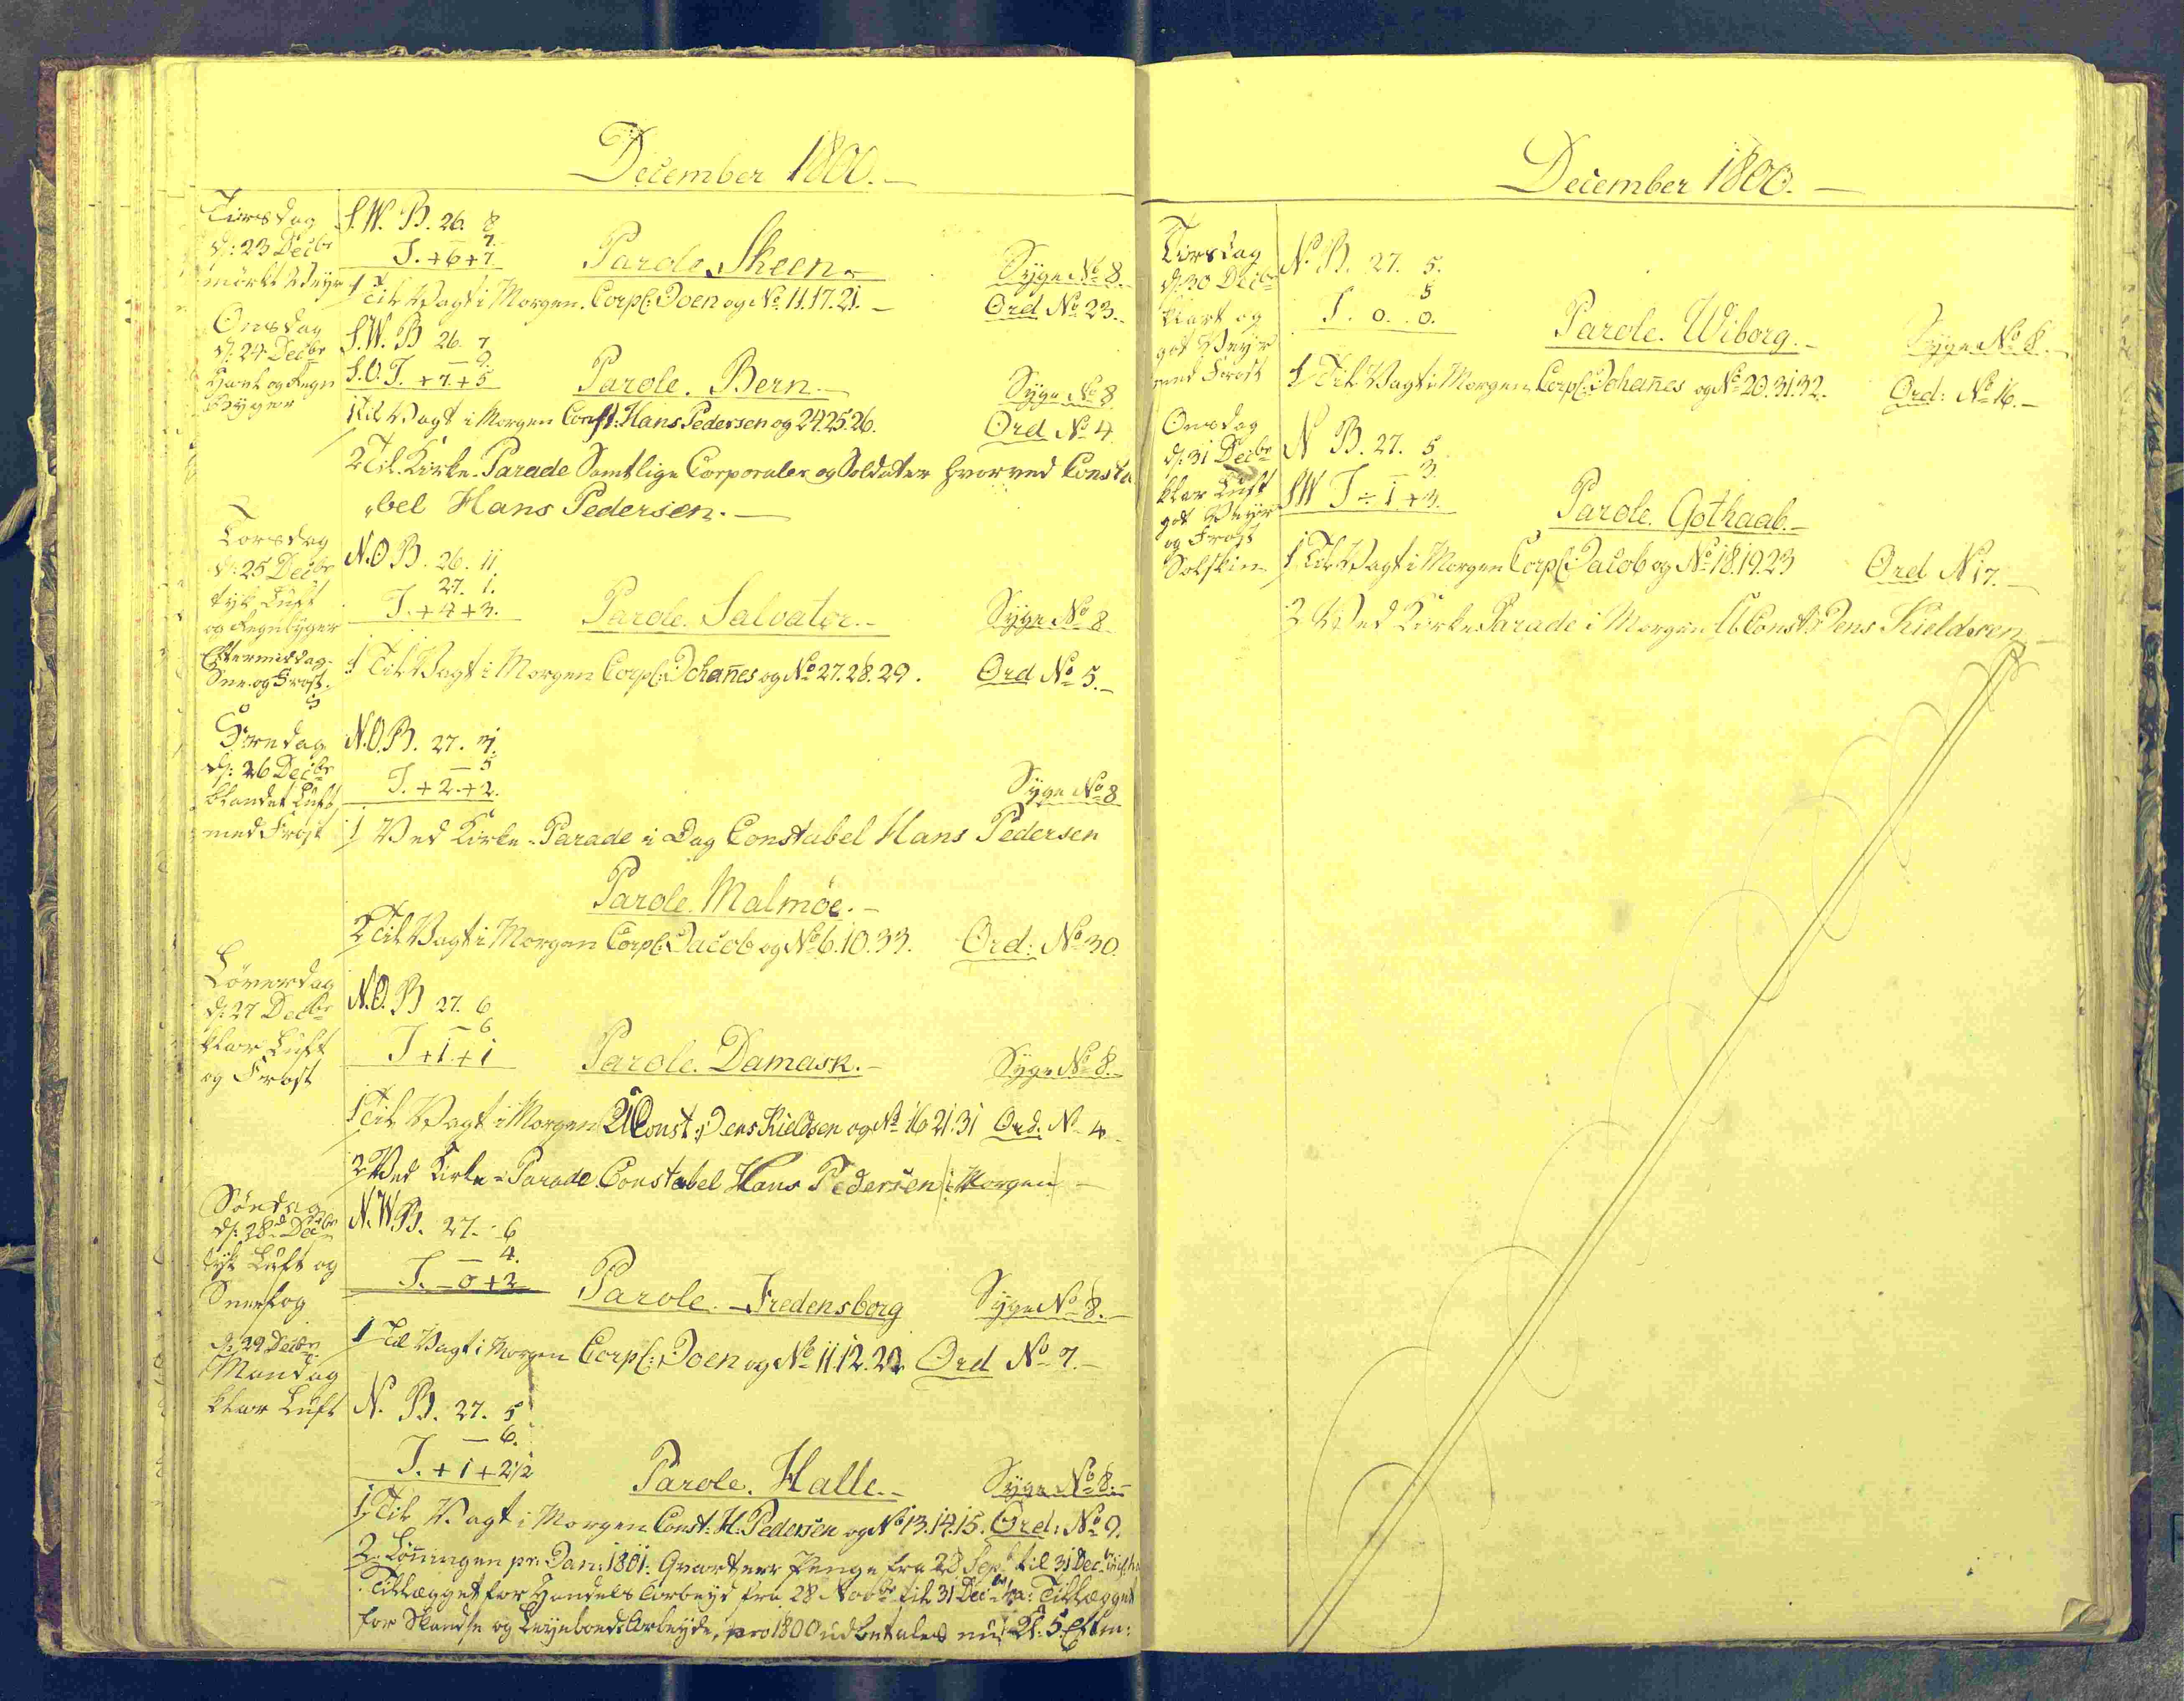 December 1800.-
Tirsdag
d: 23 Decbr
mørkt Veyr
S.W. B. 26. 8
7.
T. +6+7
Parole. Skeen.-
Syge No 8.
1 Til Vagt i Morgen. Corpl: Joen og No 11.17.21.-
Ord No 23.-
Onsdag
d: 24 Decbr
og Regn
Byger
S.W. B 26. 7
- 9.
S.O. T. +7.+5
Parole. Bern.-
Syge No 8
1 Til Vagt i Morgen Const: Hans Pedersen og 24.25.26.
Ord No 4
2 Til Kirke-Parade Samtlige Corporaler og Soldater hvorved Consta
bel Hans Pedersen.-
Torsdag
d: 25 Decbr
tyk Luft
og Regnbyger
Eftermiddag
Snee og Frost.
N.O B. 26. 11
27. 1.
T. +4+3.
Parole. Salvator.-
Syge No 8
1 Til Vagt i Morgen Corpl: Johanes og No 27.28.29.
Ord No 5.-
Fredag
d: 26 Decbr
blandet Luft
med Frost
N.O.B. 27. 4.
- 5
T. +2.+2.
Syge No 8
1 Ved Kirke-Parade i Dag Constabel Hans Pedersen
Parole. Malmöe.-
2 Til Vagt i Morgen Corpl: Jacob og No 6.10.33.
Ord: No 30
Löverdag
d: 27 Decbr
klar Luft
og Frost
N.O. B 27. 6
- 6
T +1+1
Parole. Damask.-
Syge No 8.-
1 Til Vagt i Morgen UConst: Jens Kieldsen og No 16 21.31 Ord. N 4-
2 Ved Kirke-Parade Constabel Hans Pedersen i Morgen -
Söndag
d: 28 Decbr
tyk Luft og
Sneefog
N.W B. 27. 6
- 4.
T. -0+2
Parole. Fredensborg
Syge No 8.-
1 Til Vagt i Morgen Corpl: Joen og No 11.12.22 Ord No 7.-
d: 29 Decbr
Mandag
klar Luft
N. B. 27. 5
- 6.
T. +1+2 1/2
Parole. Halle.-
Syge No 8.-
1 Til Vagt i Morgen Const: H. Pedersen og No 13.14.15. Ord: No 9.
2. Löningen pr: Jan: 1801. Qvarteer Penge fra 28 Sept til 31 Decbr
Tillægget for Handels Arbeyd fra 28 Novbr til 31 Decbr Tillægget
for Skandse og Arbeyde, pro 1800 udbetales Kl: 5. Efterm:
December 1800.-
Tirsdag
d: 30 Decbr
klart og
got Veyr
med Frost
N B. 27. 5.
5
T. 0. 0.
Parole. Wiborg.-
Syge No 8.-
1 Til Vagt i Morgen Corpl: Johanes og No 20.31.32.
Ord: No 16.-
Onsdag
d: 31 Decbr
klar Luft
got Veyr
og Frost
Solskin
N B. 27. 5
- 3.
SW T ÷ 1 + 3.
Parole. Gothaab.-
1 Til Vagt i Morgen Corpl: Jacob og No 18.19.23
Ord N 17.-
2 Ved Kirke Parade i Morgen UConst: Jens Kieldsen -